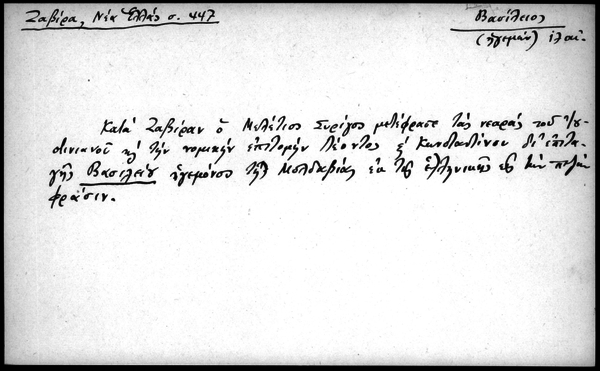 Ζαβίρα, Νέα Ἑλλάς σ. 447
Βασίλειος
(ἡγεμών)
Κατά Ζαβίραν ὁ Μελέτιος Συρίγος μετέφρασε τάς νεαράς τοῦ Ἰου-
στινιανοῦ κ τήν νομικήν ἐπιτομήν Λέοντος κ Κωνσταντίνου δι' ἐπιτα-
γῆς Βασιλείου ἡγεμόνος τῆς Μολδαβίας ἐκ τῆς ἑλληνικῆς εἰς τήν πεζήν
φράσιν.